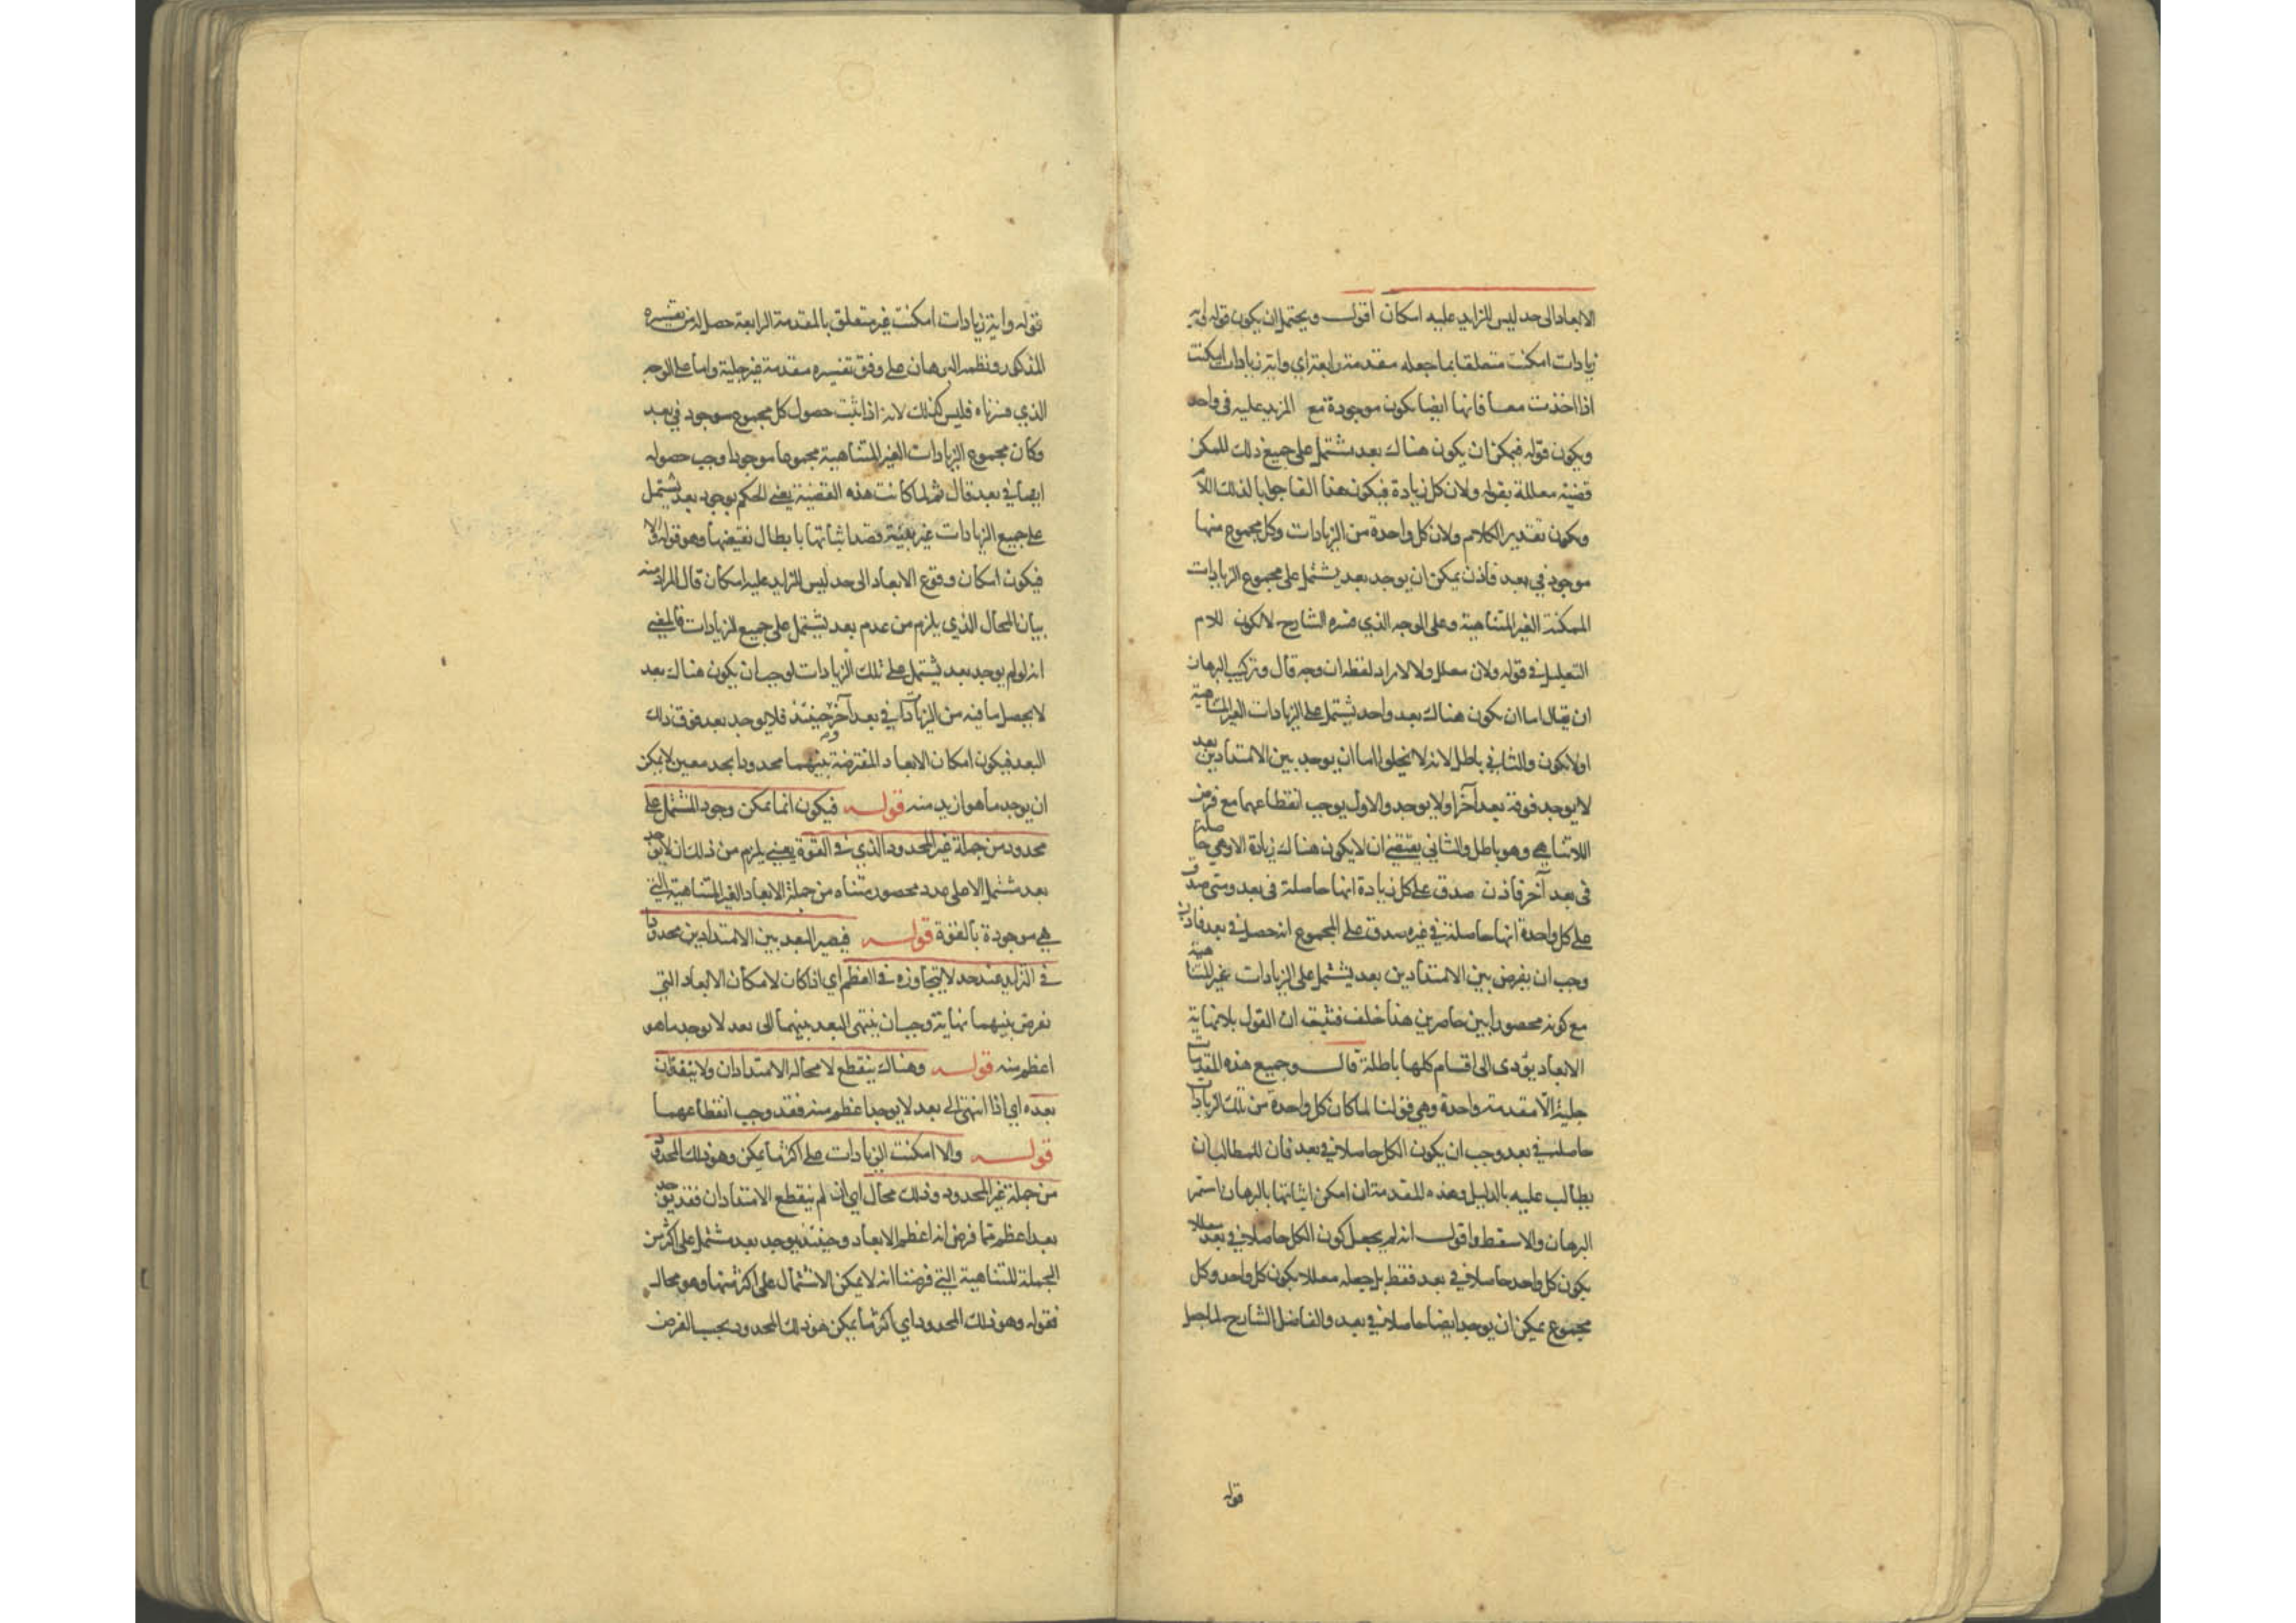 الابعاد الى حد ليس للزايد عليه امكان اقول ويحتمل ان يكون قوله واية
زيادات امكنت متعلقا بما جعله مقدمة رابعة اي واية زيادات امكنت
اذا اخذت معا فانها ايضا يكون موجودة مع المزيد عليه فى واحد
ويكون قوله فيمكن ان يكون هناك بعد يشتمل على جميع ذلك الممكن
قضية معللة بقوله ولان كل زيادة فيكون هذا الفا جوابا لذلك اللام
ويكون تقدير الكلام ولان كل واحدة من الزيادات وكل مجموع منها
موجود في بعد فاذن يمكن ان يوجد بعد يشتمل على مجموع الزيادات
الممكنة الغير المتناهية وعلى الوجه الذي فسره الشارح لا لكون للام
التعليل في قوله ولان معلل ولا لايراد لفظة ان وجه قال وتركيب البرهان
ان يقال اما ان يكون هناك بعد واحد يشتمل على الزيادات الغير المتناهية
اولا يكون والثاني باطل لانه لا يخلو اما ان يوجد بين الامتدادين بعد
لا يوجد فوقه بعد آخر او لا يوجد والاول يوجب انقطاعهما مع فرض
اللاتناهي وهو باطل والثاني يقتضي ان لا يكون هناك زيادة الا وهي حاصلة
فى بعد آخر فاذن صدق على كل زيادة انها حاصلة فى بعد ومتى صدق
على كل واحدة انها حاصلة في غيره صدق على المجموع انه حصل في بعد فاذن
وجب ان يفرض بين الامتدادين بعد يشتمل على الزيادات غير المتناهية
مع كونه محصورا بين حاصرين هذا خلف فثبت ان القول بلانهاية
الابعاد يؤدى الى اقسام كلها باطلة قال وجميع هذه المقدمات
جلية الا مقدمة واحدة وهي قولنا لما كان كل واحدة من تلك الزيادات
حاصلة في بعد وجب ان يكون الكل حاصلا في بعد فان للمطالب ان
يطالب عليه بالدليل وهذه المقدمة ان امكن اثباتها بالبرهان استمر
البرهان والا سقط واقول انه لم يجعل كون الكل حاصلا في بعد معللا
بكون كل واحد حاصلا في بعد فقط بل جعله معللا بكون كل واحد وكل
مجموع يمكن ان يوجد ايضا حاصلا في بعد والفاضل الشارح لما جعل
قوله
قوله واية زيادات امكنت غير متعلق بالمقدمة الرابعة حصل له من تفسيره
المذكور ونظمه البرهان على وفق تفسيره مقدمة غير جلية واما على الوجه
الذي فسرناه فليس كذلك لانه اذا ثبت حصول كل مجموع موجود في بعد
وكان مجموع الزيادات الغير المتناهية مجموعا موجودا وجب حصوله
ايضا في بعد قال ثم لما كانت هذه القضية يعني الحكم بوجود بعد يشتمل
على جميع الزيادات غير بينة قصد اثباتها بابطال نقيضها وهو قوله والا
فيكون امكان وقوع الابعاد الى حد ليس للزايد عليه امكان قال المراد منه
بيان المحال الذي يلزم من عدم بعد يشتمل على جميع الزيادات فالمعنى
انه لو لم يوجد بعد يشتمل على تلك الزيادات لوجب ان يكون هناك بعد
لا يحصل ما فيه من الزيادات في بعد آخر حينئذ فلا يوجد بعد فوق ذلك
البعد فيكون امكان الابعاد المفترضة بينهما محدودا بحد معين لا يمكن
ان يوجد ما هو ازيد منه قوله فيكون انما يمكن وجود المشتمل على
محدود من جملة غير المحدود الذي في القوة يعني يلزم من ذلك ان لا يوجد
بعد مشتمل الا على عدد محصور متناه من جملة الابعاد الغير المتناهية التي
هي موجودة بالقوة قوله فيصير البعد بين الامتدادين محدودا
في التزايد عند حد لا يتجاوزه في العظم اي اذا كان لامكان الابعاد التي
نفرض بينهما نهاية وجب ان ينتهى البعد بينهما الى بعد لا يوجد ما هو
اعظم منه قوله وهناك ينقطع لا محالة الامتدادان ولا ينفذان
بعده اي اذا انتهى الى بعد لا يوجد اعظم منه فقد وجب انقطاعهما
قوله والا امكنت الزيادات على اكثر ما يمكن وهو ذلك المحدود
من جملة غير المحدود وذلك محال اي ان لم ينقطع الامتدادان فقد يوجد
بعد اعظم مما فرض انه اعظم الابعاد وحينئذ يوجد بعد مشتمل على اكثر من
الجملة المتناهية التي فرضنا انه لا يمكن الاشتمال على اكثر منها وهو محال
فقوله وهو ذلك المحدود اي اكثر ما يمكن هو ذلك المحدود بحسب الفرض